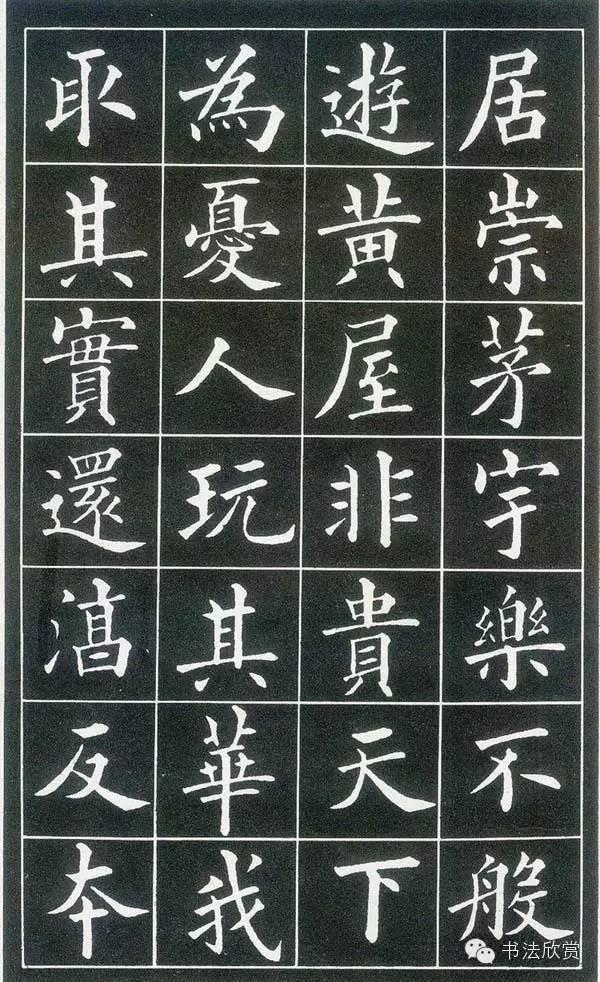 居崇茅宇樂不般
遊黃屋非貴天下
為憂人玩其華我
取其實還淳反本
书法欣赏